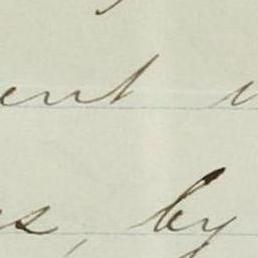 ent
s, by